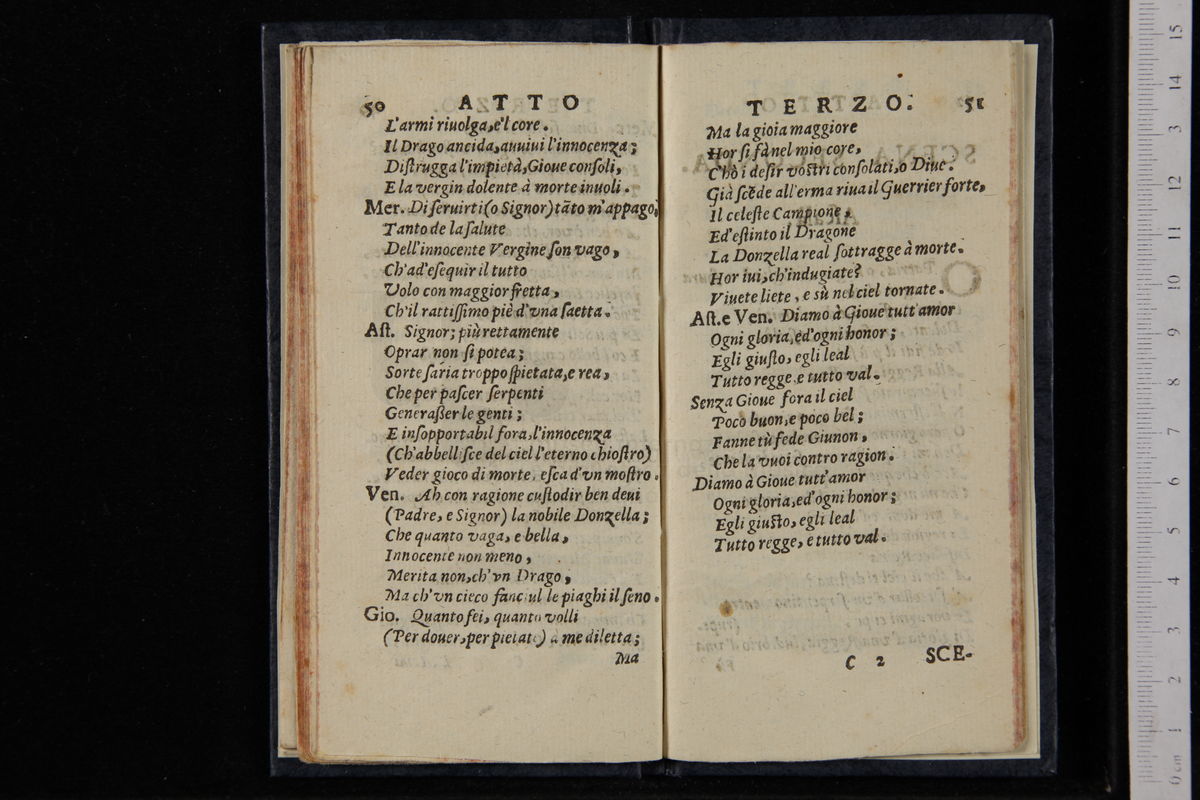 50 ATTO
L'armi riuolga, e'l core.
Il Drago ancida, auuiui l'innocenza;
Diſtrugga l'impietà, Gioue conſoli,
E la vergin dolente à morte inuoli.
Mer. Di ſeruirti (o Signor) tãto m'appago,
Tanto de la ſalute
Dell'innocente Vergine ſon vago,
Ch'ad'eſequir il tutto
Volo con maggior fretta,
Ch'il rattiſſimo piè d'vna ſaetta.
Aſt. Signor; più rettamente
Oprar non ſi potea;
Sorte ſaria troppo ſpietata, e rea,
Che per paſcer ſerpenti
Generaßer le genti;
E inſopportabil fora, l'innocenza
(Ch'abbelliſce del ciel l'eterno chioſtro)
Veder gioco di morte, eſca d'vn moſtro.
Ven. Ah con ragione cuſtodir ben deui
(Padre, e Signor) la nobile Donzella;
Che quanto vaga, e bella,
Innocente non meno,
Merita non, ch'vn Drago,
Ma ch'vn cieco fanciul le piaghi il ſeno.
Gio. Quanto fei, quanto volli
(Per douer, per pietate) a me diletta;
Ma
TERZO. 51
Ma la gioia maggiore
Hor ſi fà nel mio core,
C'hò i deſir voſtri conſolati, o Diue.
Già ſcẽde all'erma riua il Guerrier forte,
Il celeſte Campione,
Ed'eſtinto il Dragone
La Donzella real ſottragge à morte.
Hor iui, ch'indugiate?
Viuete liete, e sù nel ciel tornate.
Aſt. e Ven. Diamo à Gioue tutt'amor
Ogni gloria, ed'ogni honor;
Egli giuſto, egli leal
Tutto regge, e tutto val.
Senza Gioue fora il ciel
Poco buon, e poco bel;
Fanne tù fede Giunon,
Che la vuoi contro ragion.
Diamo à Gioue tutt'amor
Ogni gloria, ed'ogni honor;
Egli giuſto, egli leal
Tutto regge, e tutto val.
C 2 SCE-
0 cm 1 2 3 4 5 6 7 8 9 10 11 12 13 14 15